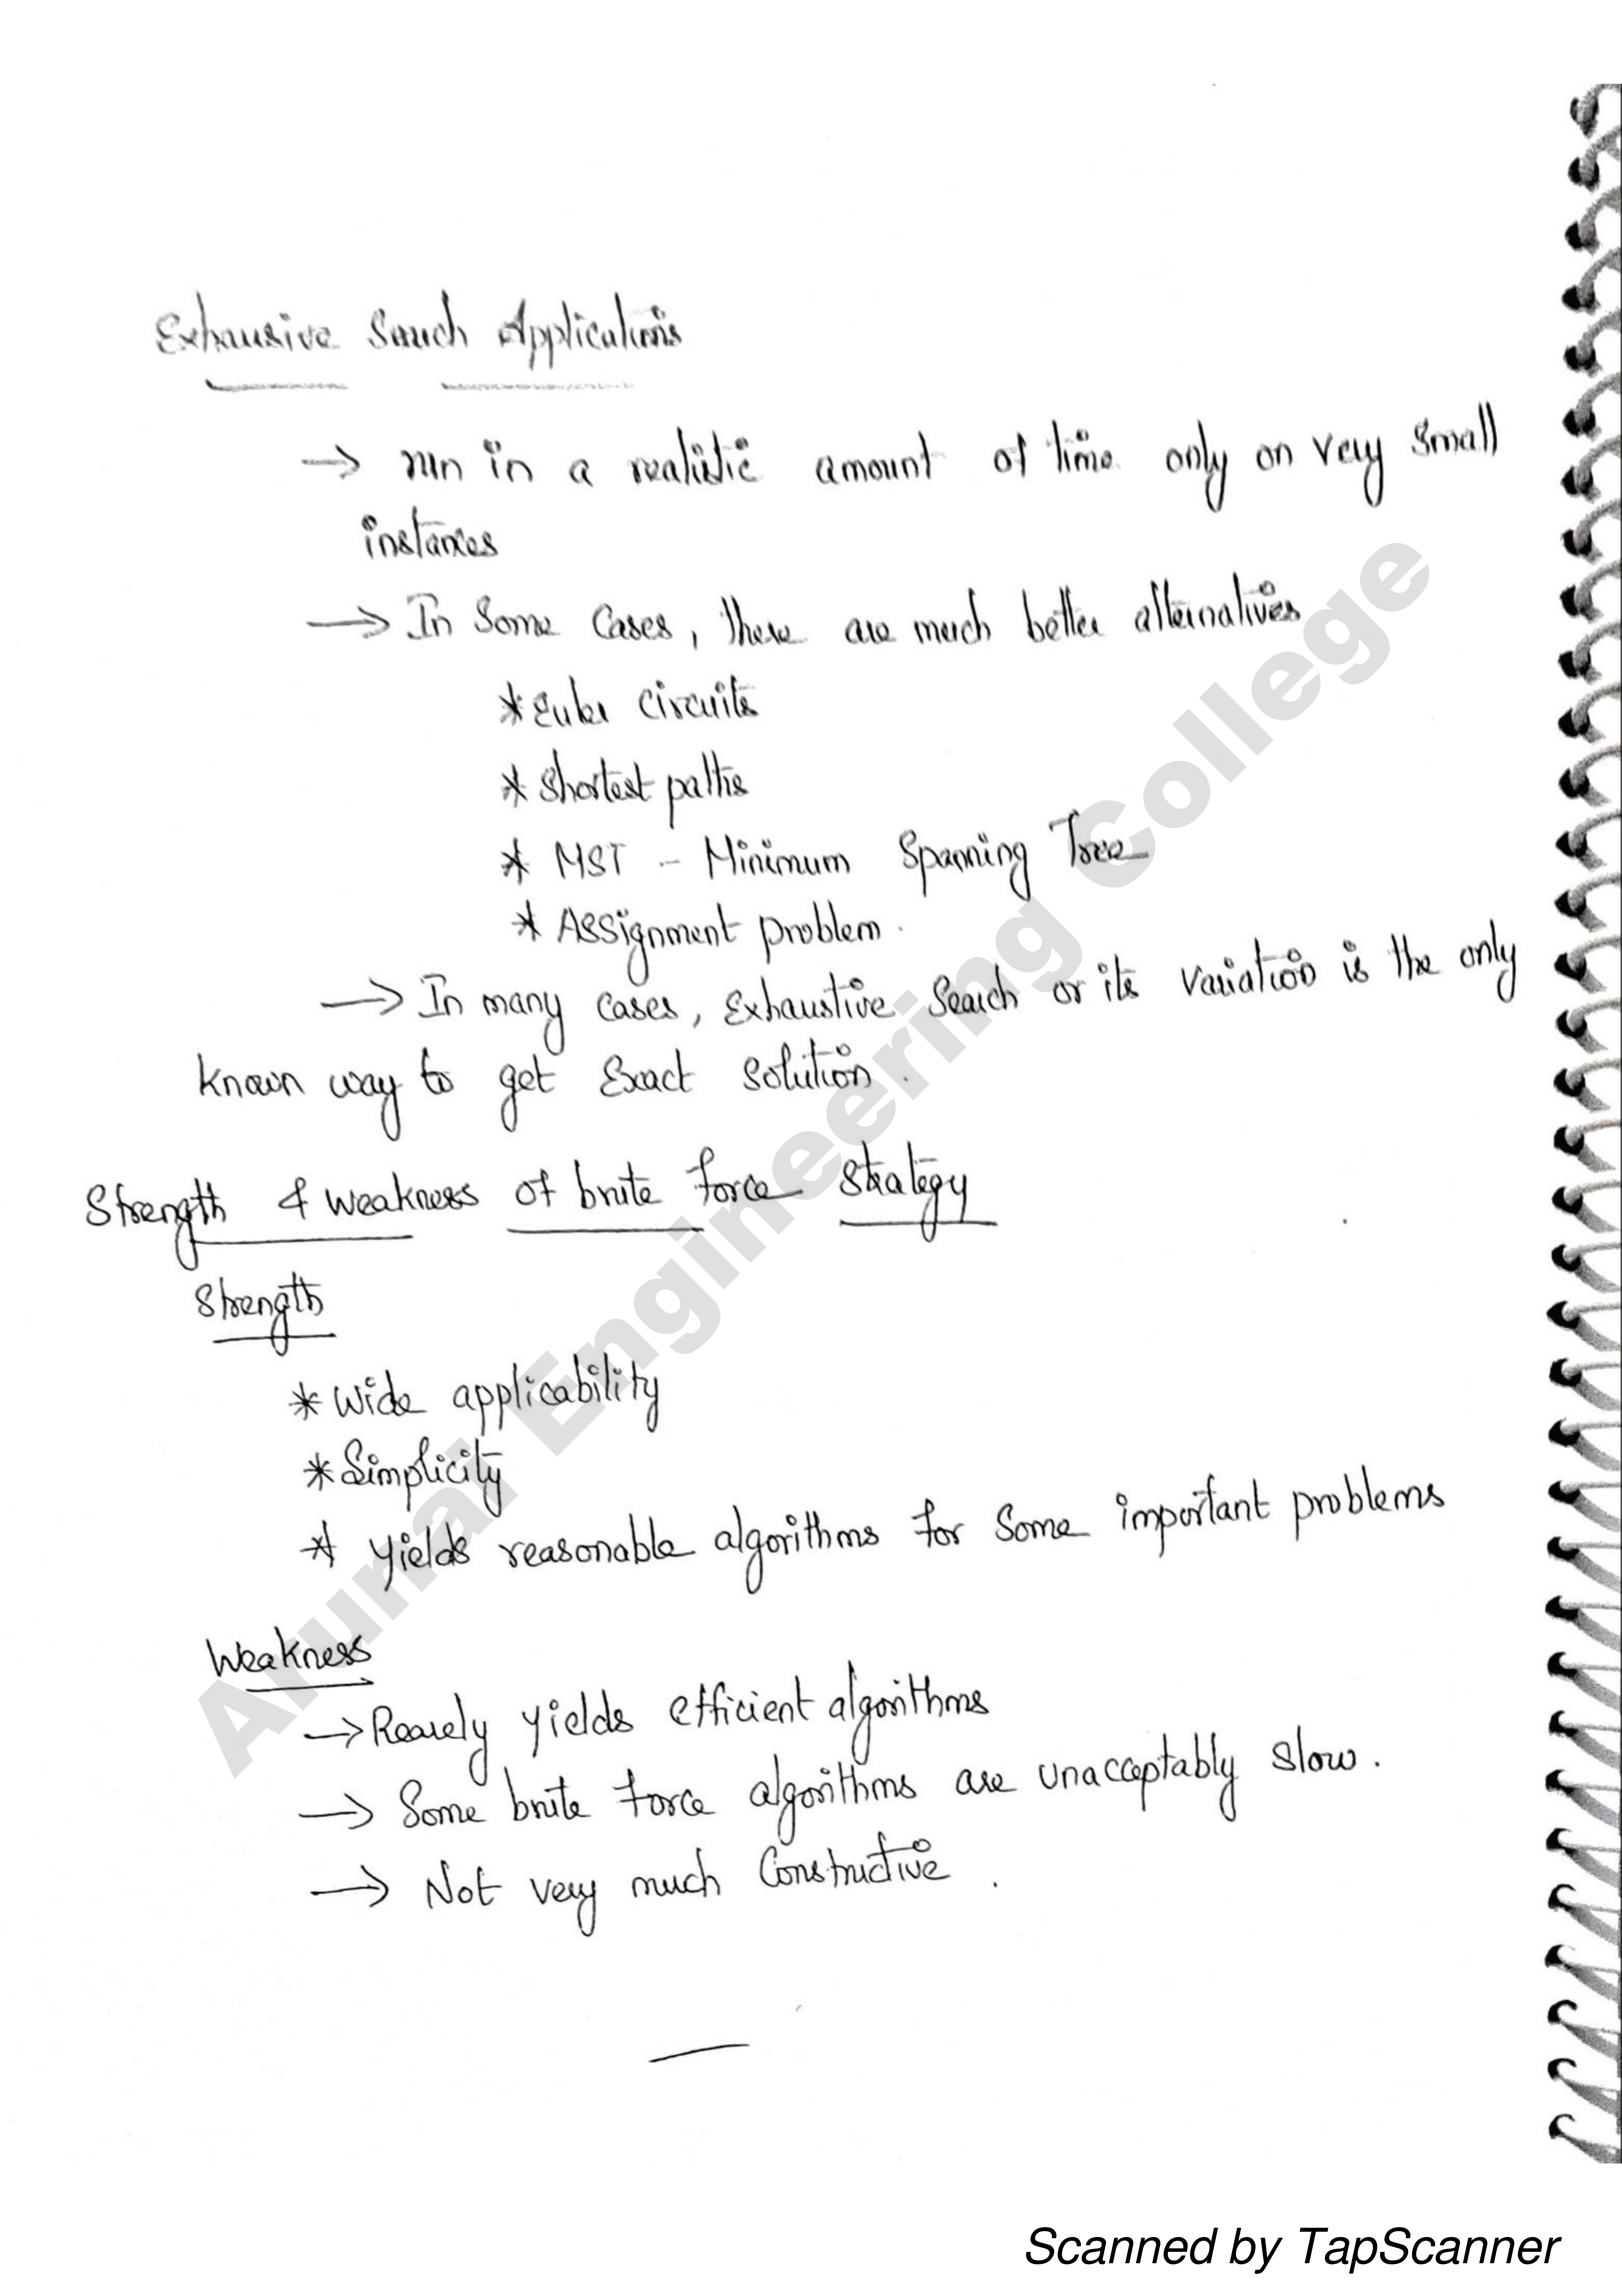 Exhausive Search Applications
→ run in a realistic amount of time only on very small
instances
→ In Some Cases, there are much better alternatives
* Euler circuits
* Shortest paths
* MST - Minimum Spanning Tree
* Assignment problem.
→ In many cases, Exhaustive Search or its variation is the only
known way to get Exact Solution.
Strength & weakness of brute force strategy
Strength
* Wide applicability
* Simplicity
* Yields reasonable algorithms for Some important problems
Weakness
→ Rarely yields efficient algorithms
→ Some brute force algorithms are unacceptably slow.
→ Not very much Constructive.
Arunai Engineering College
Scanned by TapScanner